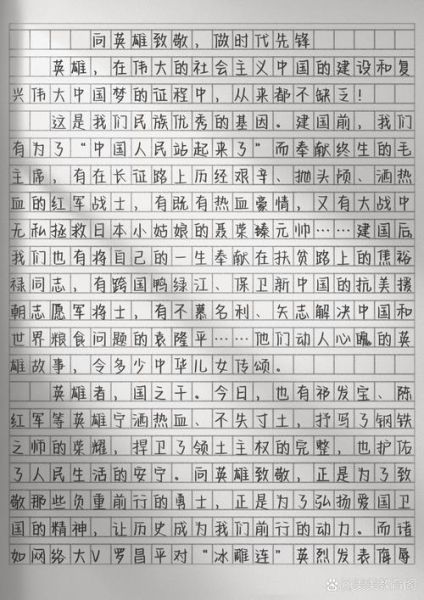 向英雄致敬，做时代先锋
英雄，在伟大的社会主义中国的建设和复
兴伟大中国梦的征程中，从来都不缺乏！
这是我们民族优秀的基因。建国前，我们
有为了“中国人民站起来了”而奉献终生的毛
主席，有在长征路上历经艰辛、抛头颅、洒热
血的红军战士，有既有热血豪情，又有大战中
无私拯救日本小姑娘的聂荣臻元帅……建国后
我们也有将自己的一生奉献在扶贫路上的焦裕
禄同志，有跨国鸭绿江、保卫新中国的抗美援
朝志愿军将士，有不慕名利、矢志解决中国和
世界粮食问题的袁隆平……他们动人心魄的英
雄故事，令多少中华儿女传颂。
英雄者，国之干。今日，也有祁发宝、陈
红军等英雄宁洒热血、不失寸土，抒写了钢铁
之师的荣耀，捍卫了领土主权的完整，也护佑
了人民生活的安宁。向英雄致敬，正是为了致
敬那些负重前行的勇士，正是为了弘扬爱国卫
国的精神，让历史成为我们前行的动力。而诸
如网络大V罗昌平对“冰雕连”英烈发表侮辱